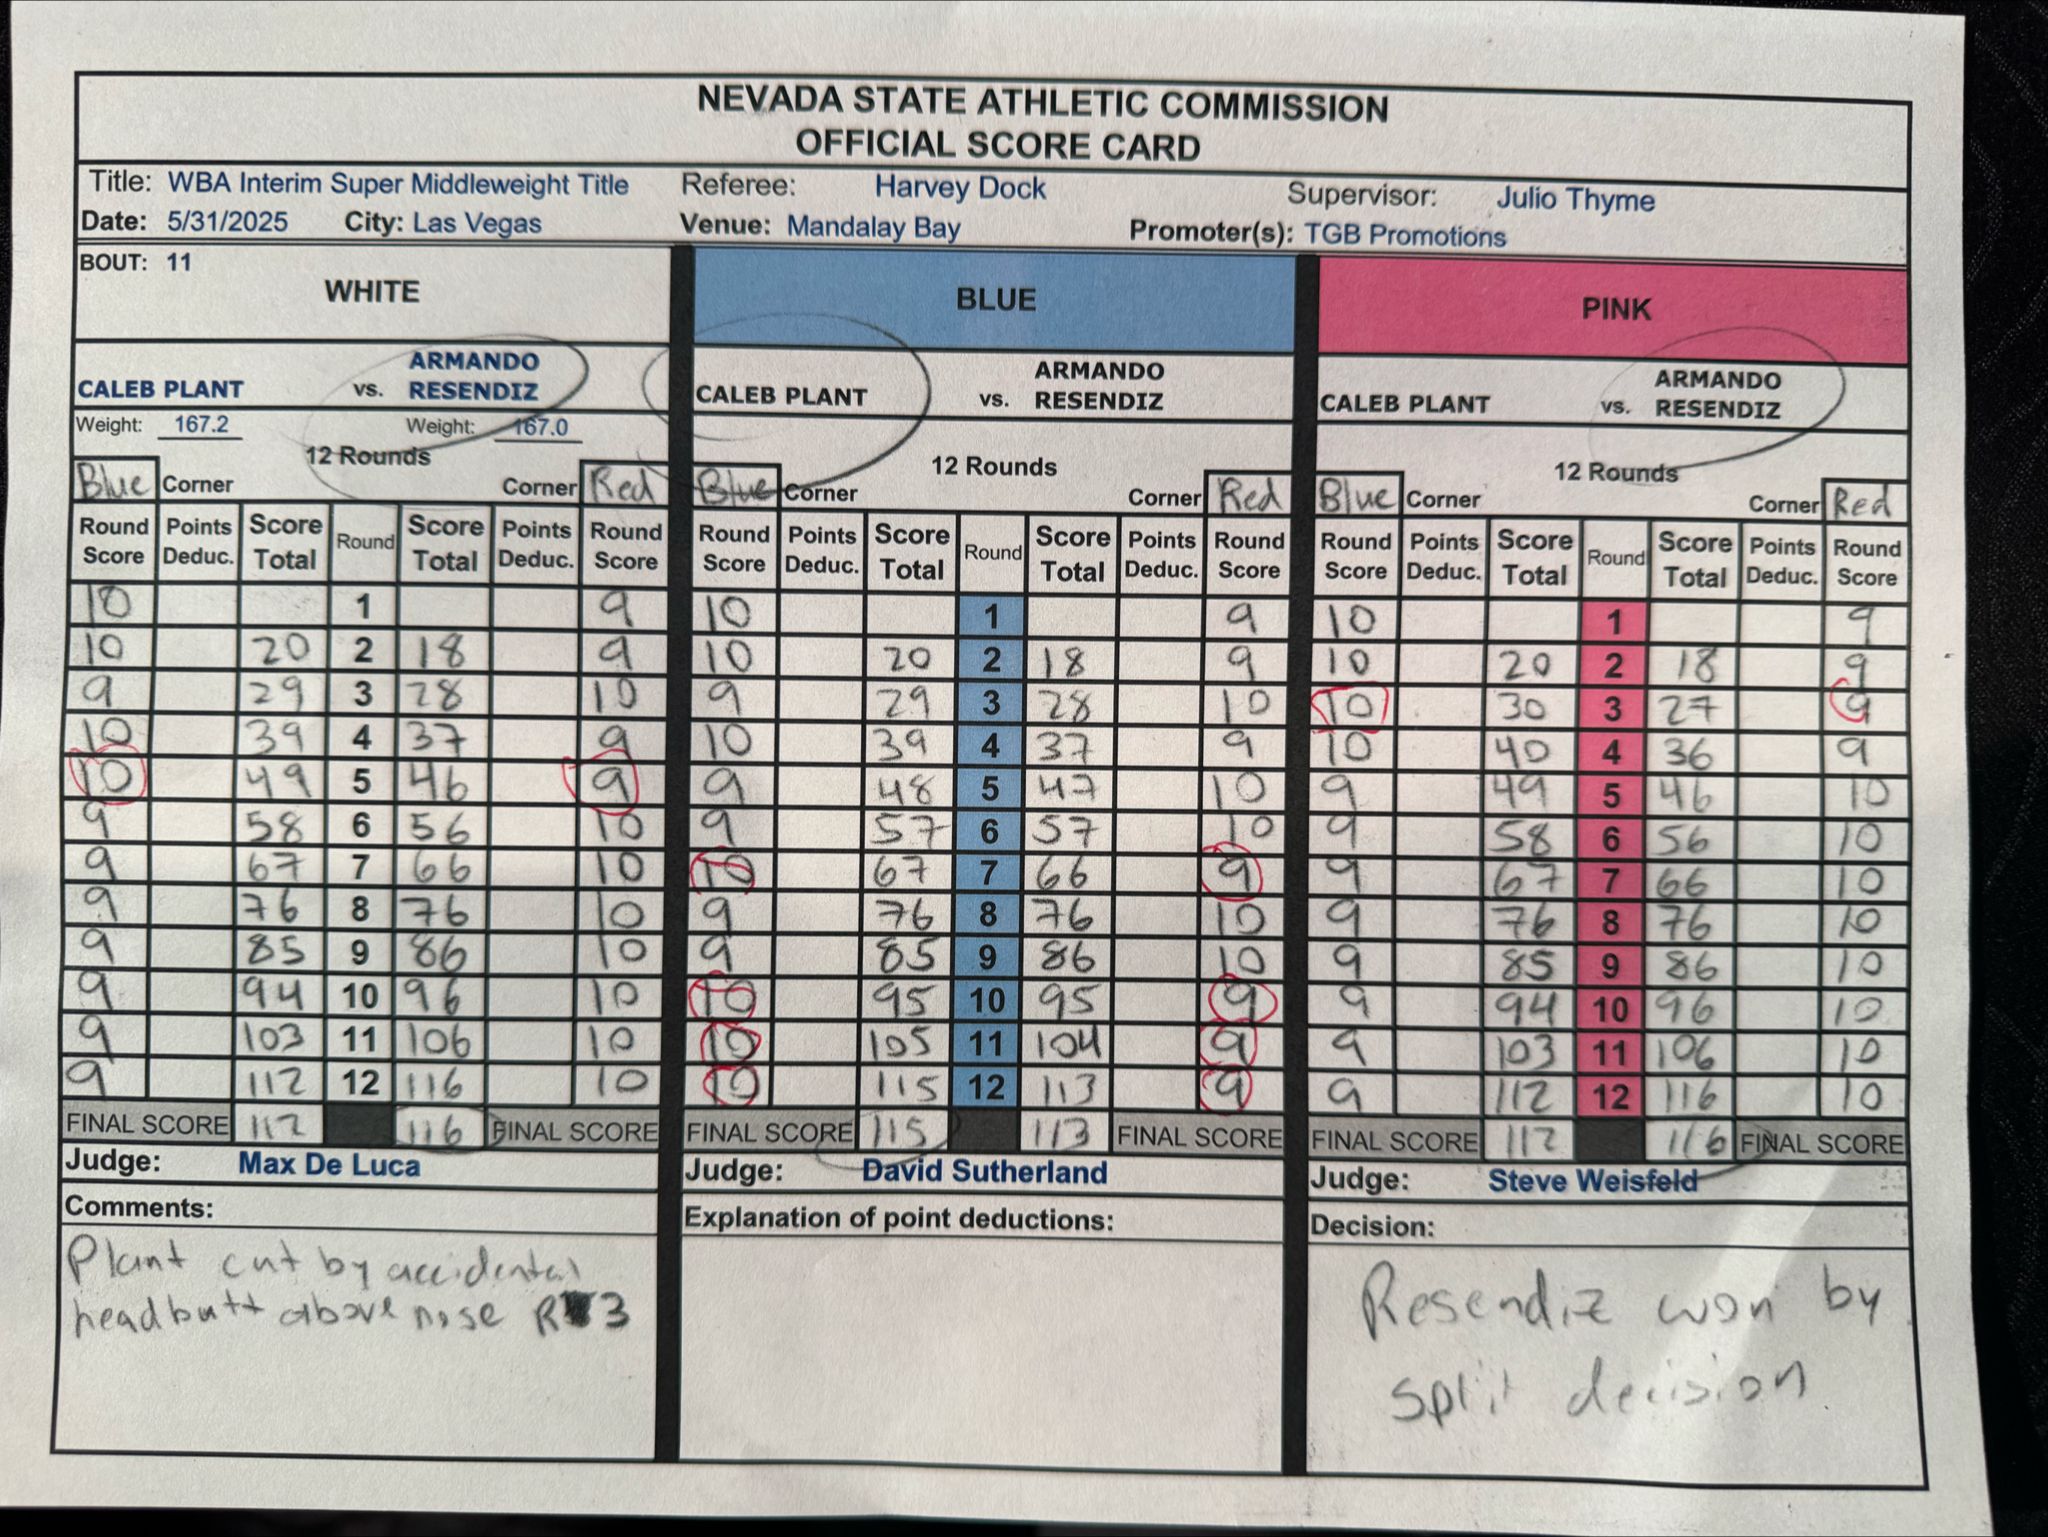 NEVADA STATE ATHLETIC COMMISSION
OFFICIAL SCORE CARD
Title: WBA Interim Super Middleweight Title Referee: Harvey Dock Supervisor: Julio Thyme
Date: 5/31/2025 City: Las Vegas Venue: Mandalay Bay Promoter(s): TGB Promotions
BOUT: 11
WHITE
CALEB PLANT vs. ARMANDO RESENDIZ
Weight: 167.2 Weight: 167.0
12 Rounds
Blue Corner Corner Red
Round Score Points Deduc. Score Total Round Score Total Points Deduc. Round Score
10 1 9
10 20 2 18 9
9 29 3 28 10
10 39 4 37 9
10 49 5 46 9
9 58 6 56 10
9 67 7 66 10
9 76 8 76 10
9 85 9 86 10
9 94 10 96 10
9 103 11 106 10
9 112 12 116 10
FINAL SCORE 112 116 FINAL SCORE
Judge: Max De Luca
Comments:
Plant cut by accidental
headbutt above nose R 3
BLUE
CALEB PLANT vs. ARMANDO RESENDIZ
12 Rounds
Blue Corner Corner Red
Round Score Points Deduc. Score Total Round Score Total Points Deduc. Round Score
10 1 9
10 20 2 18 9
9 29 3 28 10
10 39 4 37 9
9 48 5 47 10
9 57 6 57 10
10 67 7 66 9
9 76 8 76 10
9 85 9 86 10
10 95 10 95 9
10 105 11 104 9
10 115 12 113 9
FINAL SCORE 115 113 FINAL SCORE
Judge: David Sutherland
Explanation of point deductions:
PINK
CALEB PLANT vs. ARMANDO RESENDIZ
12 Rounds
Blue Corner Corner Red
Round Score Points Deduc. Score Total Round Score Total Points Deduc. Round Score
10 1 9
10 20 2 18 9
10 30 3 27 9
10 40 4 36 9
9 49 5 46 10
9 58 6 56 10
9 67 7 66 10
9 76 8 76 10
9 85 9 86 10
9 94 10 96 10
9 103 11 106 10
9 112 12 116 10
FINAL SCORE 112 116 FINAL SCORE
Judge: Steve Weisfeld
Decision:
Resendiz won by
split decision